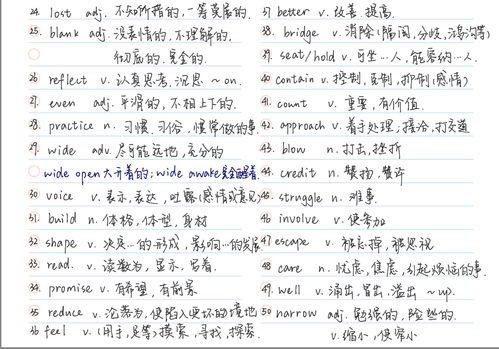 24. lost adj. 不知所措的,一筹莫展的.
25. blank adj. 没表情的,不理解的,
彻底的.完全的.
26 reflect v. 认真思考,沉思 ~ on.
27. even adj. 平滑的,不相上下的.
28. practice n. 习惯.习俗,惯常做的事
29. wide adv. 尽可能远地,充分的
wide open 大开着的; wide awake 完全醒着.
30 voice v. 表示,表达,吐露(感情或意见)
31. build n. 体格,体型,身材
32 shape v. 决定…的形成,影响…的发展
33. read. v. 读数为,显示,写着.
34 promise v. 有希望,有前景
35 reduce v. 沦落为,使陷入更坏的境地
36 feel v. (用手,足等)摸索,寻找,探索.
37 better v. 改善.提高.
38. bridge v. 消除(隔阂,分歧,鸿沟等)
39. seat/hold v. 可坐…人,能容纳…人.
40 contain v. 控制,克制,抑制(感情)
41. count v. 重要,有价值.
42. approach v. 着手处理;接洽,打交道
43. blow n. 打击,挫折
44. credit n. 赞扬,赞许
45. struggle n. 难事.
46 involve v. 使参加
47 escape v. 被忘掉,被忽视
48 care n. 忧虑,焦虑,引起烦恼的事.
49. well v. 涌出,冒出,溢出 ~up.
50 narrow adj. 勉强的,险些的.
v. 缩小,使窄小